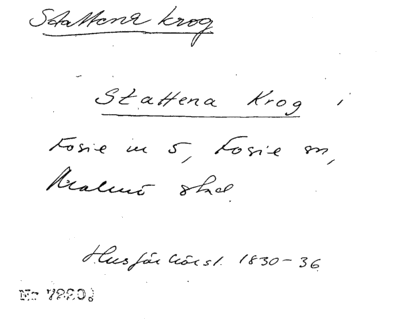 Stattena krog
Stattena Krog i
Fosie nr 5, Fosie sn,
Malmö stad
Husförhörsl. 1830-36
Nr 7220.